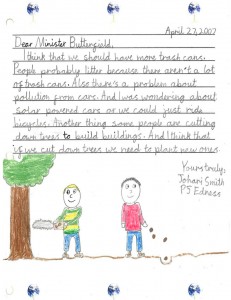 April 27, 2007
Dear Minister Butterfield,
I think that we should have more trash cans.
People probably litter because there aren't a lot
of trash cans. Also there's a problem about
pollution from cars. And I was wondering about
solar powered cars or we could just ride
bicycles. Another thing some people are cutting
down trees to build buildings. And I think that
if we cut down trees we need to plant new ones.
Yours truly,
Johari Smith
P5 Edness